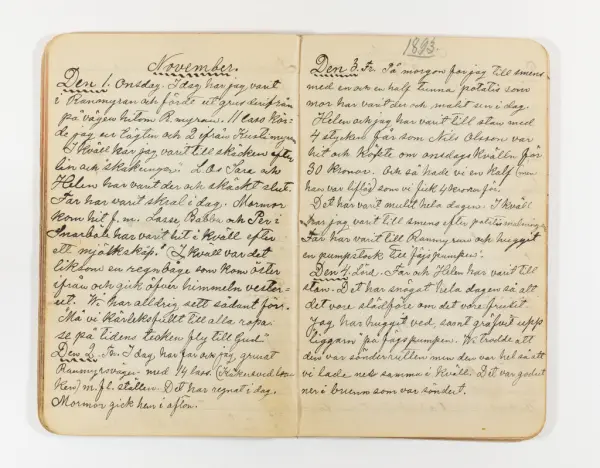 November.
Den 1. Onsdag. I dag har jag varit
i Ranomyran och förde ut gres derifrån
på vägen hitom R. myran. 11 lass kör-
de jag ser 9 och 2 ifrån
I kväll har jag varit till skäcken efter
lin och "skäkinger". L. Os Sara och
Helen har varit der och skäckt slut.
Far har varit skral i dag. Mormor
kom hit f. m. Lasse, Babba och Per i
Snarbäti har varit hit i kväll efter
ett "mjölkskåp." I kväll var det
liksom en regnbåge som kom öster
ifrån och gick öfver himmeln vester-
ut. Vi har alldrig sett sådant förr.
"Må vi kärleksfullt till alla ropa
se på tidens tecken fly till Gud"
Den 2. To. I dag, har far och jag, gruat
Ranmyrsvägen med 14 lass
m. fl. ställen. Det har regnat i dag.
Mormor gick hem i afton.
1893.
Den 3. Fr. På morgon for jag till smens
med en och en half tunna potatis som
mor har varit der och malt sen i dag.
Helen och jag har varit till stan med
4 stycken får som Nils Olsson var
hit och köpte om onsdags kvällen för
30 kronor. Och så hade vi en kalf (men
han var liflös) som vi fick 4 kronor för.
Det har varit mulit hela dagen. I kväll
har jag varit till smens efter potatismalningen
Far har varit till Ranmyran och huggit
en pumpstock till fägspumpen.
Den 4. Lörd. Far och Helen har varit till
stan. Det har snögat hela dagen så att
det vore slädföre om det vore frusit.
Jag har huggit ved, samt gräfvit upp
liggarn på fägspumpen. Vi trodde att
den var sönderrutten men den var hel så att
vi lade neds samma i kväll. Det var godast
ner i brunn som var söndert.